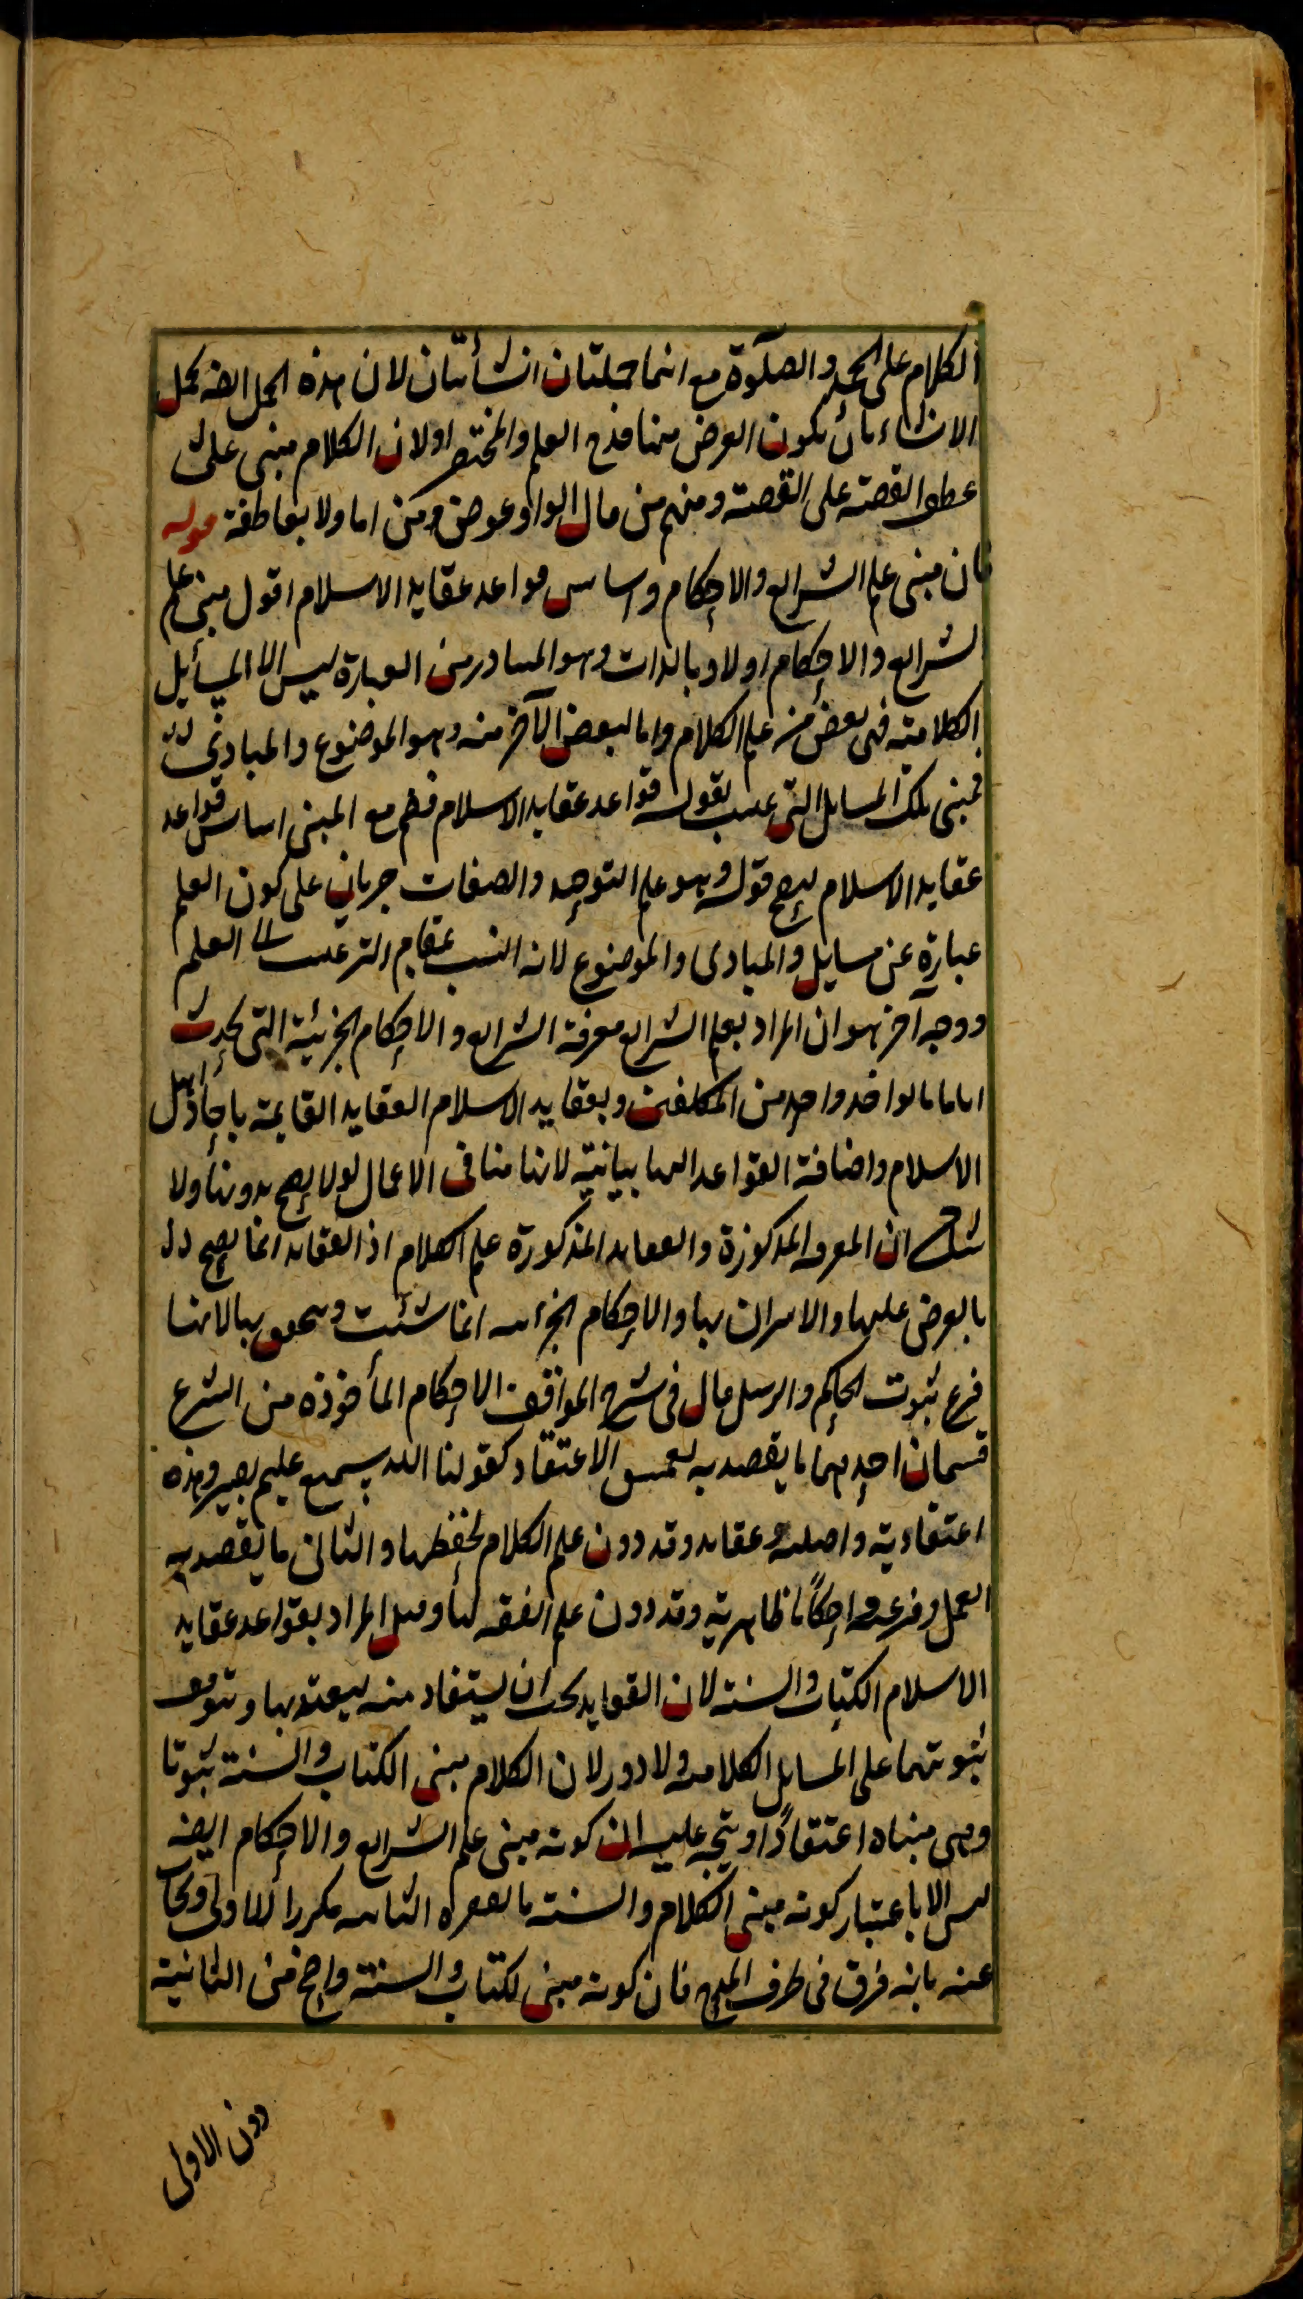 الكلام على الحمد والصلوة مع انهما جملتان انشائيتان لان هذه الجمل ايضه تحمل
الانشاء بان يكون الغرض منها مدح العلم والمختصر او لان الكلام مبنى على
عطف القصة على القصة ومنهم من قال الواو عوض من اما ولا بعاطفة قوله
فان مبنى علم الشرايع والاحكام واساس قواعد عقايد الاسلام اقول مبنى علم
الشرايع والاحكام اولا وبالذات وهو المتبادر من العبارة ليس الا المسأيل
الكلامية فهى بعض من علم الكلام واما البعض الآخر منه وهو الموضوع والمبادئ
فمبنى تلك المسايل التى بقوله قواعد عقايد الاسلام فضم مع المبنى اساس قواعد
عقايد الاسلام ليصح قوله وهو علم التوحيد والصفات جريان على كون العلم
عبارة عن مسايل والمبادى والموضوع لانه انسب بمقام الترغيب الى العلم
ووجه آخر هو ان المراد بعلم الشرايع معرفة الشرايع والاحكام الجزئية التى تحدث
لواحد واحد من المكلفين وبعقايد الاسلام العقايد القايمة باحاد اهل
الاسلام واضافة القواعد اليها بيانية لانها منافى الاعمال لولا يصح بدونها ولا
شك ان المعرفة المذكورة والعقايد المذكورة علم الكلام اذ العقايد انما يصح
بالعرض عليها والاحكام الجزئية انما تثبت ويتحقق بها لانها
فرع ثبوت الحاكم والرسل قال فى شرح المواقف الاحكام المأخوذة من الشرع
قسمان احدهما ما يقصد به لنفس الاعتقاد كقولنا الله سميع عليم بصير وهذه
اعتقادية واصلية وعقايد وقد دون علم الكلام لحفظها والثانى ما يقصد به
العمل وفرعية واحكاما ظاهرية وقد دون علم الفقه لها وقيل المراد بقواعد عقايد
الاسلام الكتاب والسنة لان القوايد يجب ان يستفاد منه ليعتد بها ويتوقف
ثبوتهما على المسايل الكلامية ولا دور لان الكلام مبنى الكتاب والسنة ثبوتا
وهى مبناه اعتقادًا ويتجه عليه ان كونه مبنى علم الشرايع والاحكام ايضه
ليس الا باعتبار كونه مبنى الكلام والسنة فالفقرة الثانية مكررا للاولى ويجاب
عنه بانه فرق فى طرف المدح فان كونه مبنى لكتاب والسنة واضح من الثانية
دون الاولى